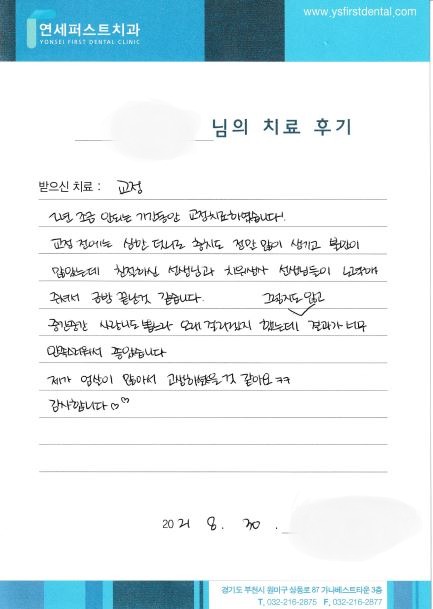 연세퍼스트치과
YONSEI FIRST DENTAL CLINIC
www.ysfirstdental.com
님의 치료 후기
받으신 치료 : 교정
2년 조금 안되는 기간동안 교정치료하였습니다.
교정 전에는 심한 덧니로 충치도 정말 많이 생기고 불만이
많았는데 친절하신 선생님과 치위생사 선생님들이
주셔서 금방 끝난것 같습니다. 그럼에도 않고
중간중간 사랑니도 뽑느라 오래 걸리겠지 했는데 결과가 너무
만족스러워서 좋았습니다
제가 엄살이 많아서 고생하셨을 것 같아요 ㅋㅋ
감사합니다 ♡♡
2021 8. 30.
경기도 부천시 원미구 상동로 87 가나베스트타운 3층
T, 032-216-2875 F, 032-216-2877